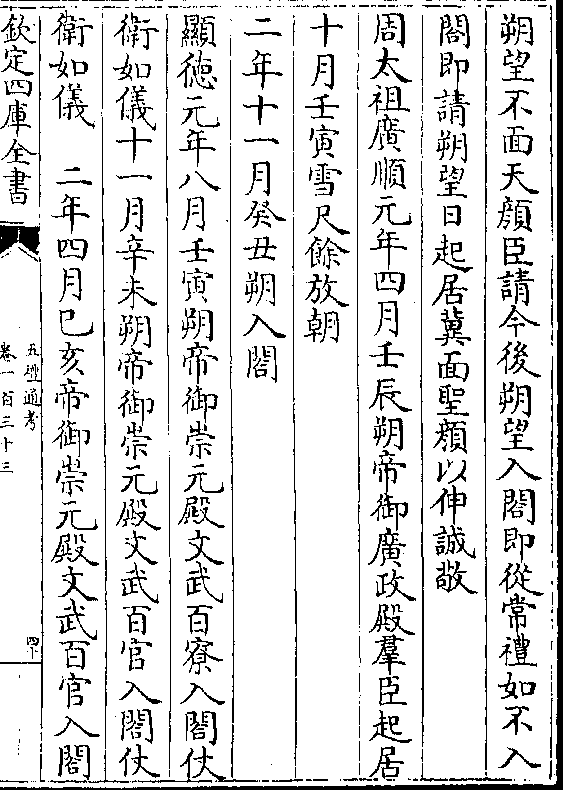 朔望不面天顔臣請今後朔望入閤即從常禮如不入
閤即請朔望日起居冀面聖顔以伸誠敬
周太祖廣順元年四月壬辰朔帝御廣政殿羣臣起居
十月壬寅雪尺餘放朝
二年十一月癸丑朔入閤
顯徳元年八月壬寅朔帝御崇元殿文武百寮入閤仗
衛如儀十一月辛未朔帝御崇元殿文武百官入閤仗
衛如儀　二年四月己亥帝御崇元殿文武百官入閤
欽定四庫全書
五禮通考
卷一百三十三
四十